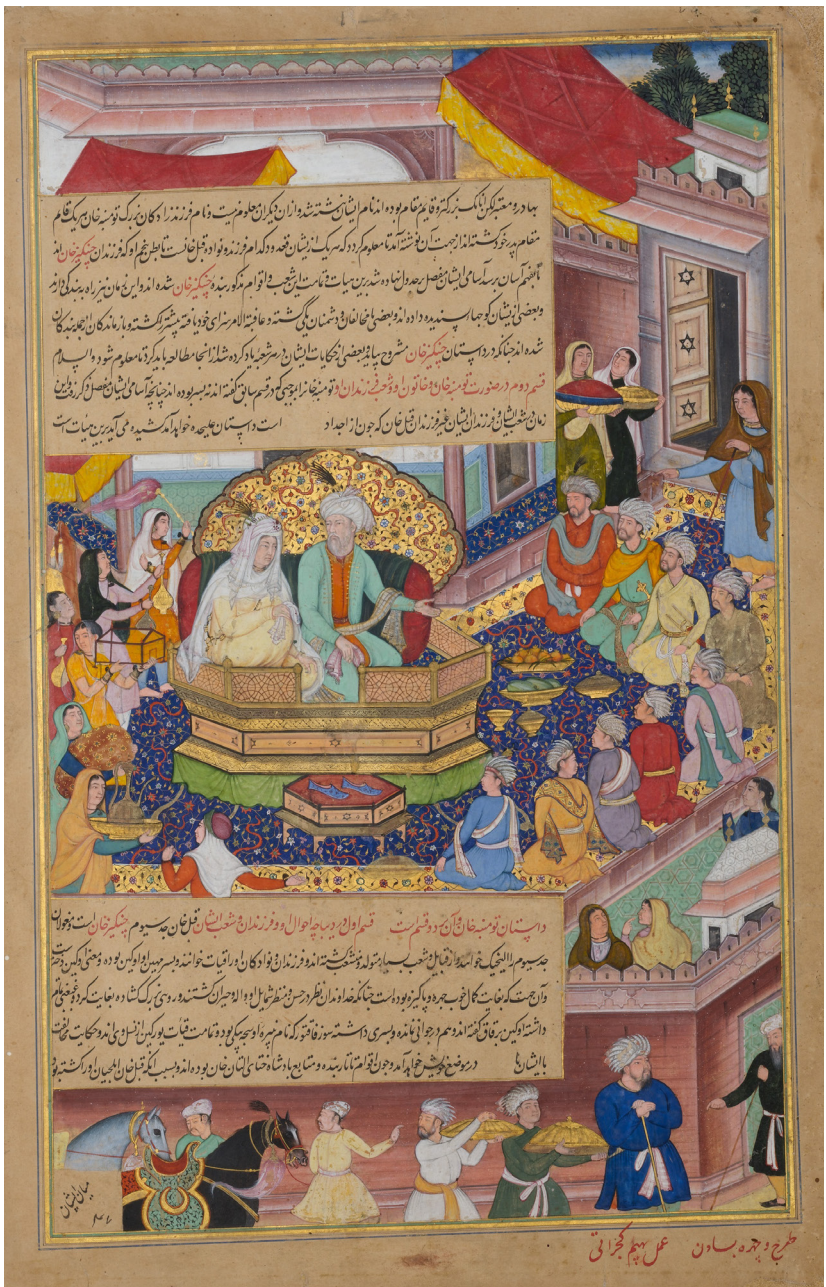 بهادر و معتبر لیکن آنانک بزرگتر و قائم مقام بوده اند نام ایشان نوشته شد و از آن دیگران معلوم نیست و نام فرزند زادکان بزرگ تومنه خان هر یک قائم
مقام پدر خود کشته اند از جهت آن نوشته آمد تا معلوم کردد که هر یک از ایشان از کدام فرزند و نواده قبل خانست چنکیز خان اند
تا بفهم آسان برسد و اسامی ایشان مفصل بر جدول نهاده شد برین هیات و تمامت این شعب و اقوام مذکور بنده چنکیز خان شده اند و این زمان نیز راه بندکی دارند
و بعضی از ایشان کوجها پسندیده داده اند و بعضی با مخالفان و دشمنان یکی کشته و عاقبة الامر سزای خود یافته بیشتر کشته و باز ماندکان بندکان
شده اند چنانکه در داستان چنکیز خان مشروح بیاید و بعضی از حکایات ایشان در هر شعبه یاد کرده شد از آنجا مطالعه باید کرد تا معلوم شود والسلام
قسم دوم در صورت تومنه خان و خاتون او و شعب فرزندان او تومنه خان را بموجبی که در قسم سابق کفته اند نه پسر بوده اند چنانچه اسامی ایشان مفصل ذکر رفت و این
زمان شعب ایشان و فرزندان ایشان غیر فرزندان قبل خان که چون از اجداد است داستان علیحده خواهد آمد کشیده می آید برین هیات است
داستان تومنه خان و آن بر دو قسم است قسم اول در دیباجه احوال او و فرزندان و شعب ایشان قبل خان جد سیوم چنکیز خان است و مغولان
جد سیوم را الینچیک خوانند و از قبایل و شعب بسیار متولد و منشعب کشته اند و فرزندان و نوادکان او را قیات خوانند و پسر مهین او اوکین بوده و معنی اوکین دختر است
و آن جهت که بغایت خوب چهره و پاکیزه بوده است چنانکه خداوندان نظر در حسن و منظر و شمایل او واله و حیران کشتندی و روی بزرک کشاده بغایت کرد و غبغبی تمام
داشته اوکین برقاق کفته اند و هم در جوانی نمانده و پسری داشته سورقاقتو که نام قیات یورکین از نسل وی اند و حکایت مخالفت
با ایشان در موضع خویش خواهد آمد و چون اقوام تاتار بنده و متابع پادشاه ختای التان خان بوده اند و بسبب آنکه قبل خان ایلچیان او را کشته بود
میان ایشان
طرح و چهره بساون عمل بهیم کجراتی